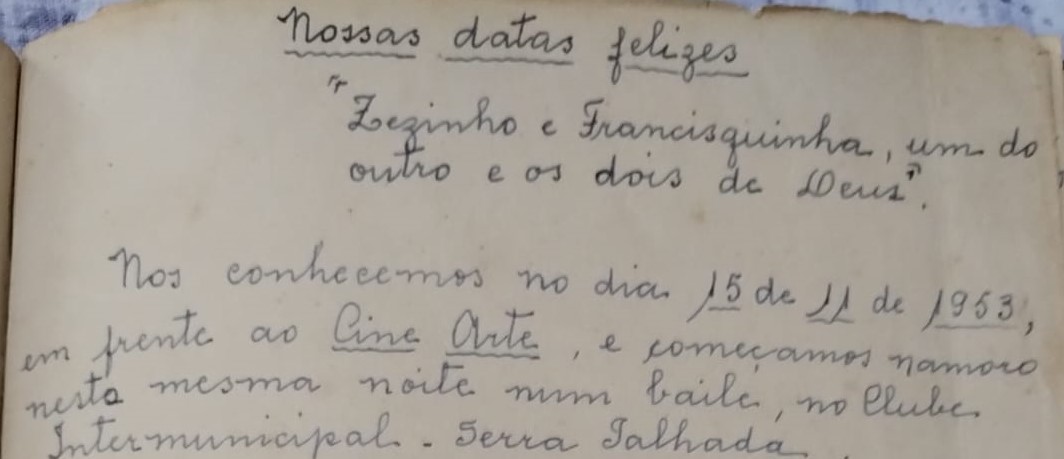 Nossas datas felizes
"Zezinho e Francisquinha, um do
outro e os dois de Deus".
Nos conhecemos no dia 15 de 11 de 1953,
em frente ao Cine Arte, e começamos namoro
nesta mesma noite num baile, no Clube
Intermunicipal - Serra Talhada.